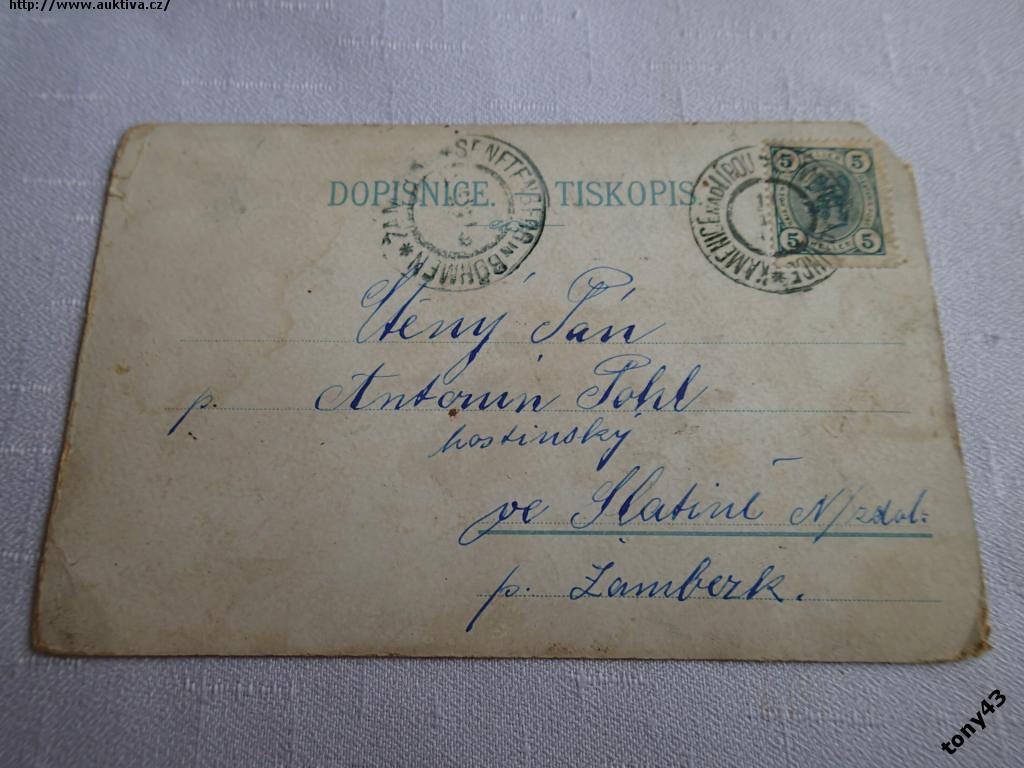 http://www.auktiva.cz/
DOPISNICE. TISKOPIS.
SENFTENBERG IN BÖHMEN * ŽAM
* KAMENICE NAD LIPOU
5 5
5 5
Ctěný Pán
p. Antonín Pohl
hostinský
ve Slatině N/zdob:
p. Žamberk.
tony43